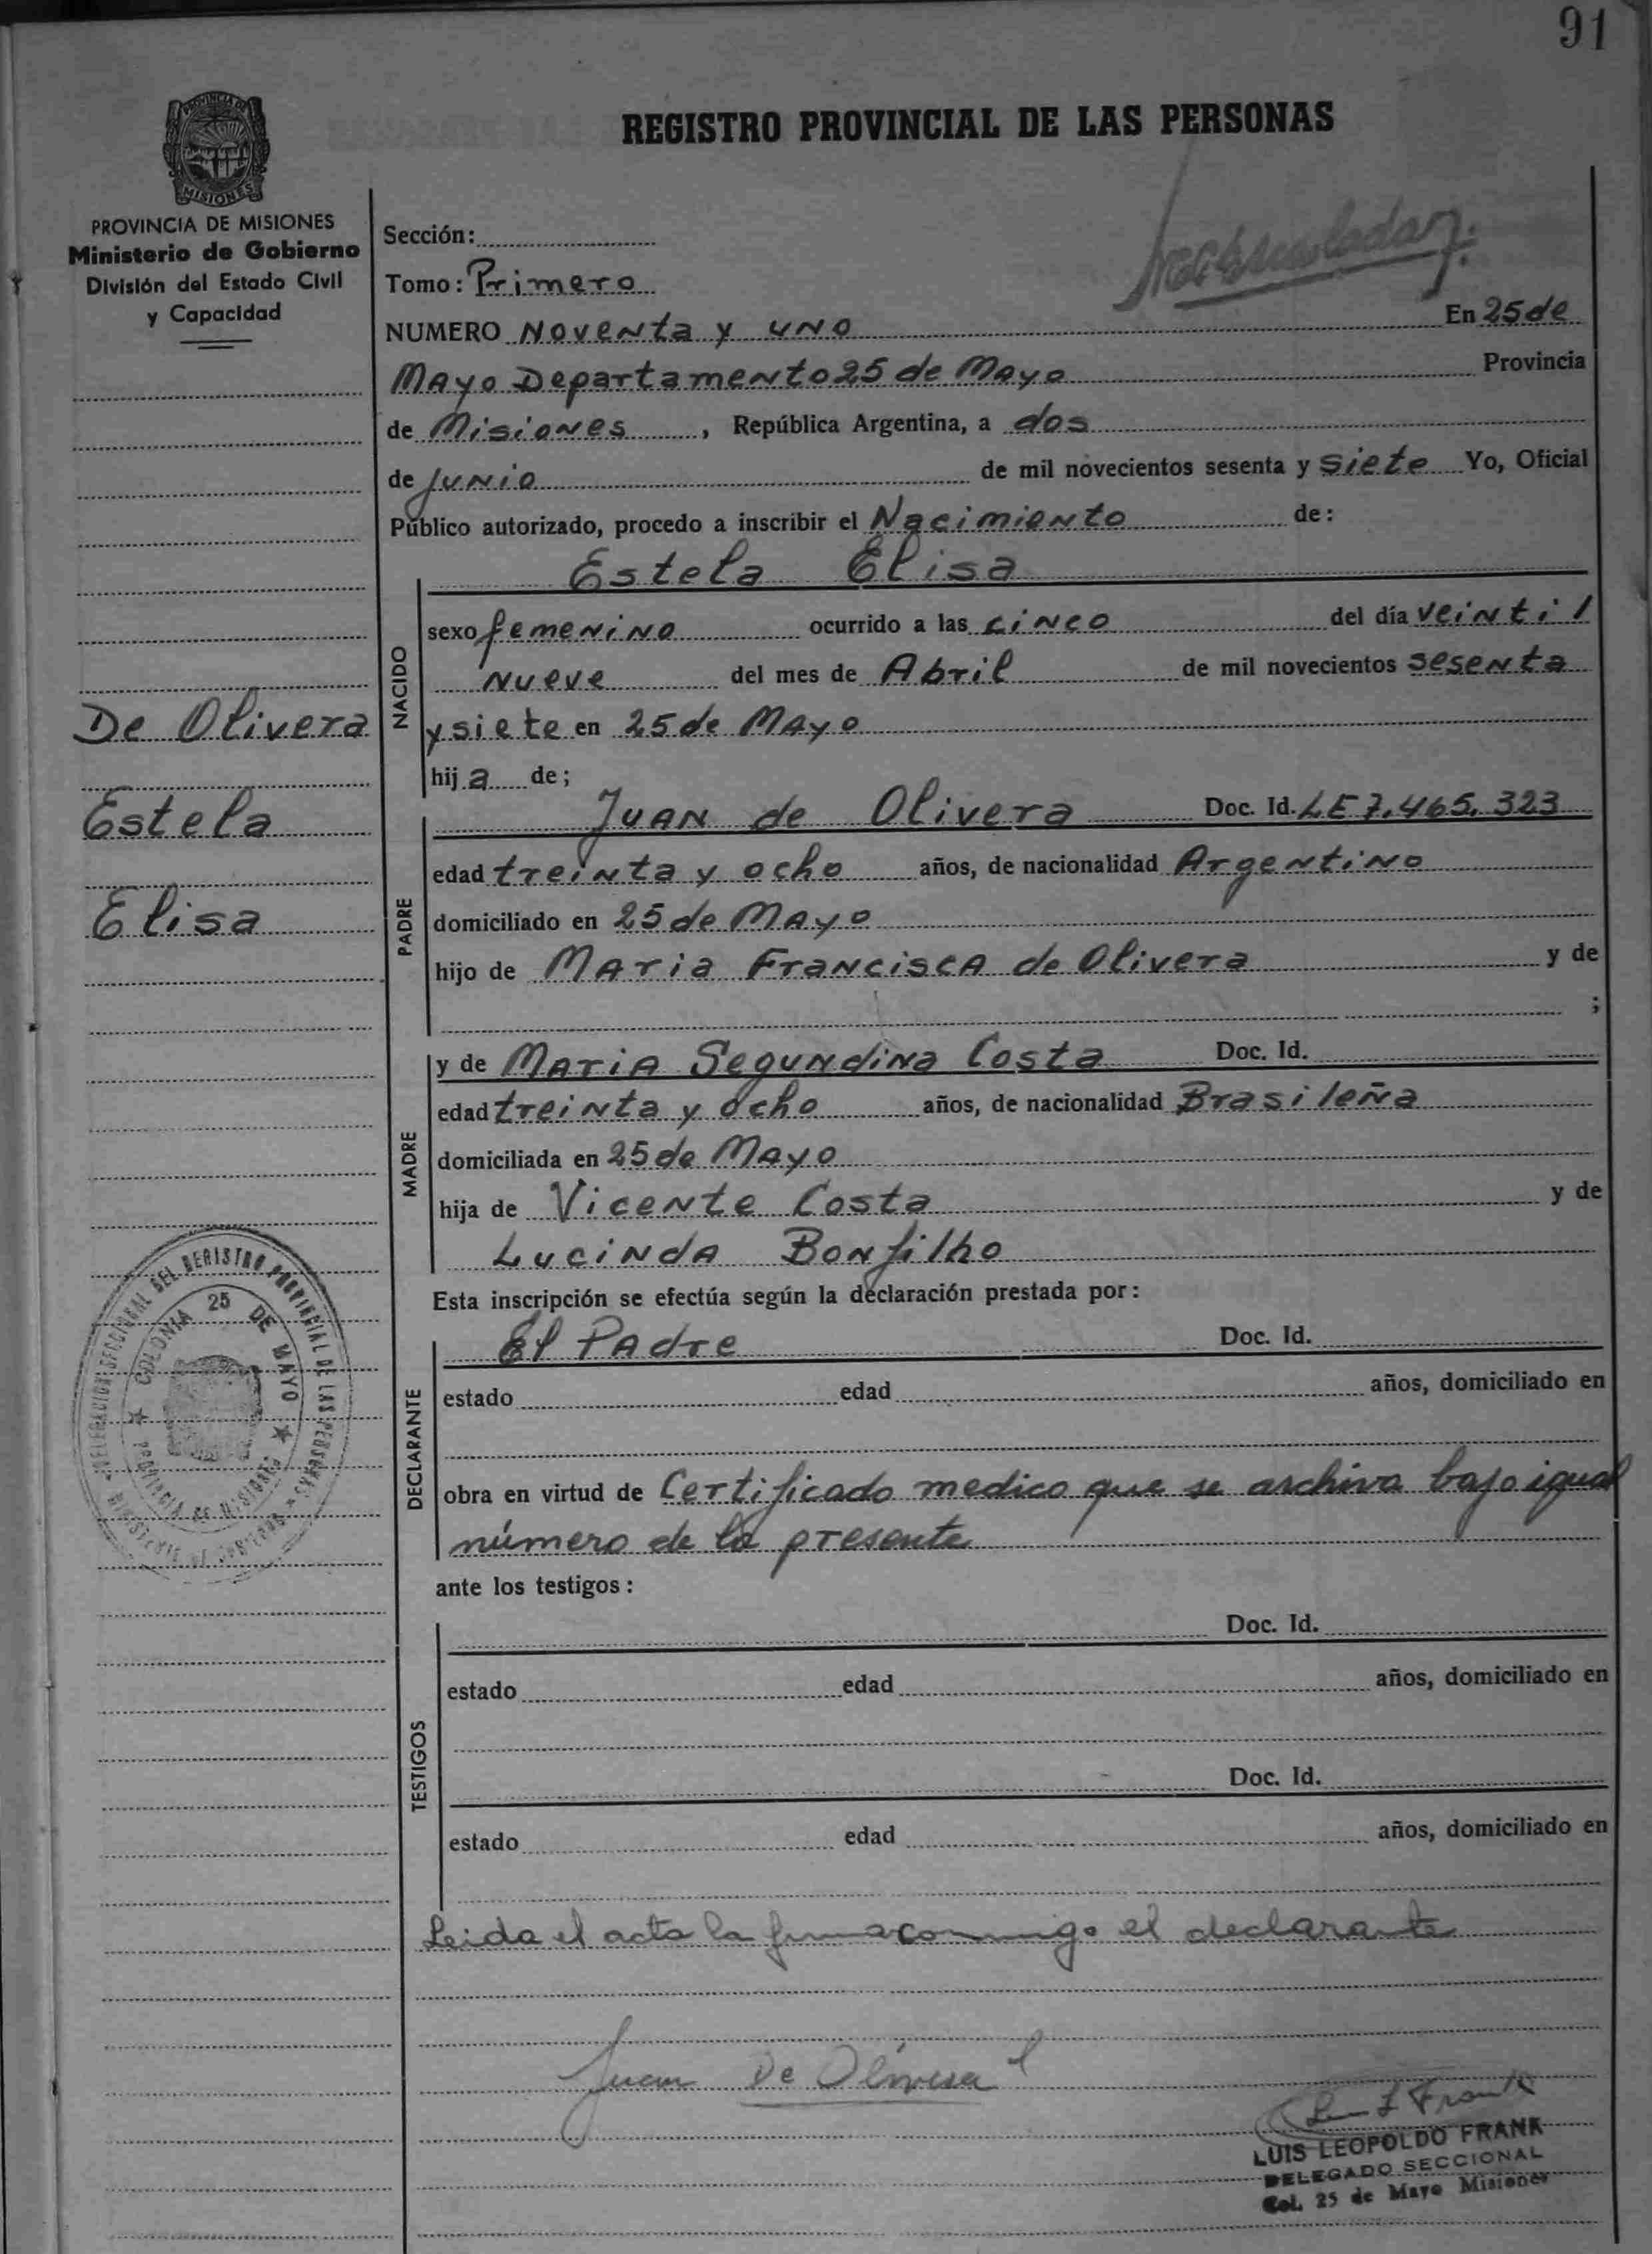 91
REGISTRO PROVINCIAL DE LAS PERSONAS
PROVINCIA DE
MISIONES
PROVINCIA DE MISIONES
Ministerio de Gobierno
División del Estado Civil
y Capacidad
Sección:
Tomo: Primero
NUMERO Noventa y uno En 25 de
Mayo Departamento 25 de Mayo Provincia
de Misiones, República Argentina, a dos
de Junio de mil novecientos sesenta y siete Yo, Oficial
Público autorizado, procedo a inscribir el Nacimiento de:
Estela Elisa
NACIDO
sexo femenino ocurrido a las cinco del día veinti
nueve del mes de Abril de mil novecientos sesenta
y siete en 25 de Mayo
hij a de;
De Olivera
Estela
Elisa
PADRE
Juan de Olivera Doc. Id. LE 7.465.323
edad treinta y ocho años, de nacionalidad Argentino
domiciliado en 25 de Mayo
hijo de Maria Francisca de Olivera y de
;
MADRE
y de Maria Segundina Costa Doc. Id.
edad treinta y ocho años, de nacionalidad Brasileña
domiciliada en 25 de Mayo
hija de Vicente Costa y de
Lucinda Bonfilho
Esta inscripción se efectúa según la declaración prestada por:
DECLARANTE
El Padre Doc. Id.
estado edad años, domiciliado en
obra en virtud de Certificado medico que se archiva bajo igual
número de la presente
COLONIA 25 DE MAYO
PROVINCIA DE MISIONES
ante los testigos:
TESTIGOS
Doc. Id.
estado edad años, domiciliado en
Doc. Id.
estado edad años, domiciliado en
Leida el acta la firma conmigo el declarante
Juan De Olivera
LUIS LEOPOLDO FRANK
DELEGADO SECCIONAL
Col. 25 de Mayo Misiones